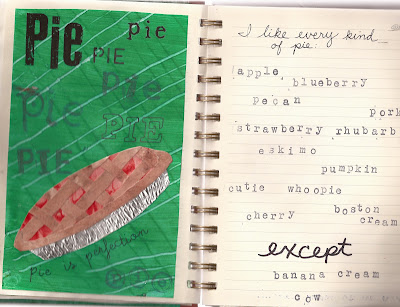 Pie
pie
PIE
Pie
Pie
PIE
PIE
Pie is perfection
I like every kind
of pie:
apple
blueberry
pecan
pork
strawberry rhubarb
eskimo
pumpkin
cutie whoopie
cherry
boston
cream
except
banana cream
cow